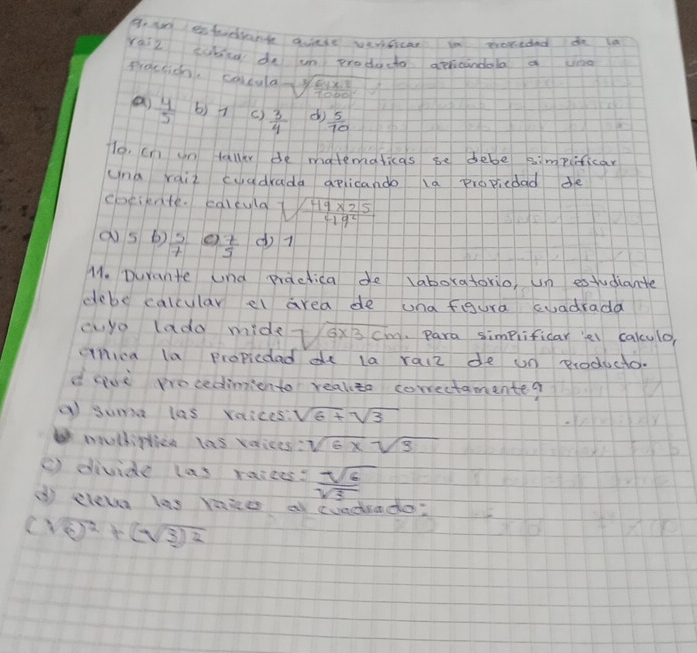 9. un estudiante quiere verificar la propiedad de la
raíz cúbica de un producto aplicándola a una
fracción. calcula ∛
a) 4/5 b) 1 c) 3/4 d) 5/10
10. en un taller de matematicas se debe simplificar
una raiz cuadrada aplicando la propiedad de
cociente. calcula √(49x25/49²)
a) 5 b) 5/7 c) 7/5 d) 1
11. Durante una práctica de laboratorio, un estudiante
debe calcular el área de una figura cuadrada
cuyo lado mide √6x3 cm. Para simplificar el calculo,
aplica la propiedad de la raiz de un producto.
¿qué procedimiento realizo correctamente?
a) suma las raices: √6 + √3
b) multiplica las raices: √6 x √3
c) divide las raices: √6/√3
d) eleva las raices al cuadrado:
(√6)² + (√3)²